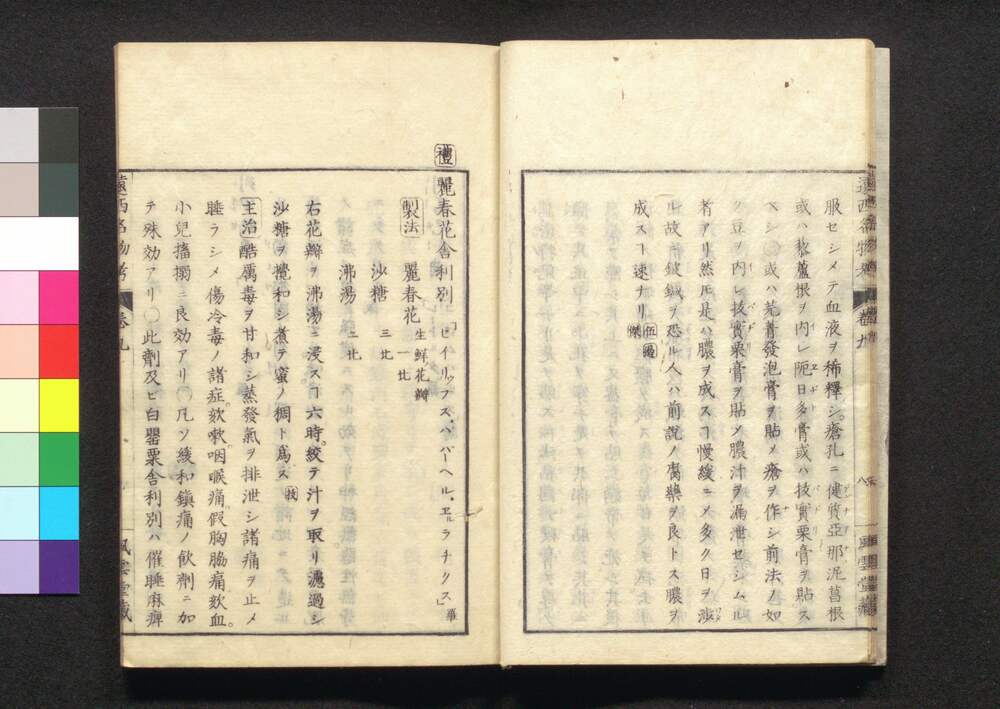 服セシメテ血液ヲ稀釋シ。瘡孔ニ健質亞那泥葛根
或ハ藜蘆根ヲ内レ阨日多膏或ハ抜實栗膏ヲ貼ス
ベシ〇或ハ芫菁發泡膏ヲ貼メ瘡ヲ作シ前法ノ如
ク豆ヲ内レ抜實栗膏ヲ貼メ膿汁ヲ漏泄セシムル
者アリ然𪜈是ハ膿ヲ成スヿ慢緩ニメ多ク日ヲ渉
ル故ニ鈹鍼ヲ恐ルヽ人ハ前説ノ腐藥ヲ良トス膿ヲ
成スヿ速ナリ
遠西名物考 卷九
風雲堂藏
禮
麗春花舎利別「セイリュプス、パパーヘル、ヱルラチクス」
製法 麗春花 生鮮花瓣 一比
沙糖 三比
沸湯 二比
右花瓣ヲ沸湯ニ浸スヿ六時。絞テ汁ヲ取リ濾過シ
沙糖ヲ攪和シ煮テ蜜ノ稠ト爲ス
主治 酷厲毒ヲ甘和シ蒸發氣ヲ排泄シ諸痛ヲ止メ
睡ラシメ傷冷毒ノ諸症。欬嗽。咽喉痛。假胸脇痛。欬血。
小兒搐搦ニ良効アリ〇凡ソ緩和鎭痛ノ飲劑ニ加
テ殊効アリ〇此劑及ヒ白罌粟舎利別ハ催睡麻痺
遠西名物考 卷九
風雲堂藏